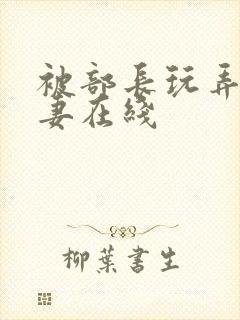 被部长玩弄
妻在綫
柳葉書生